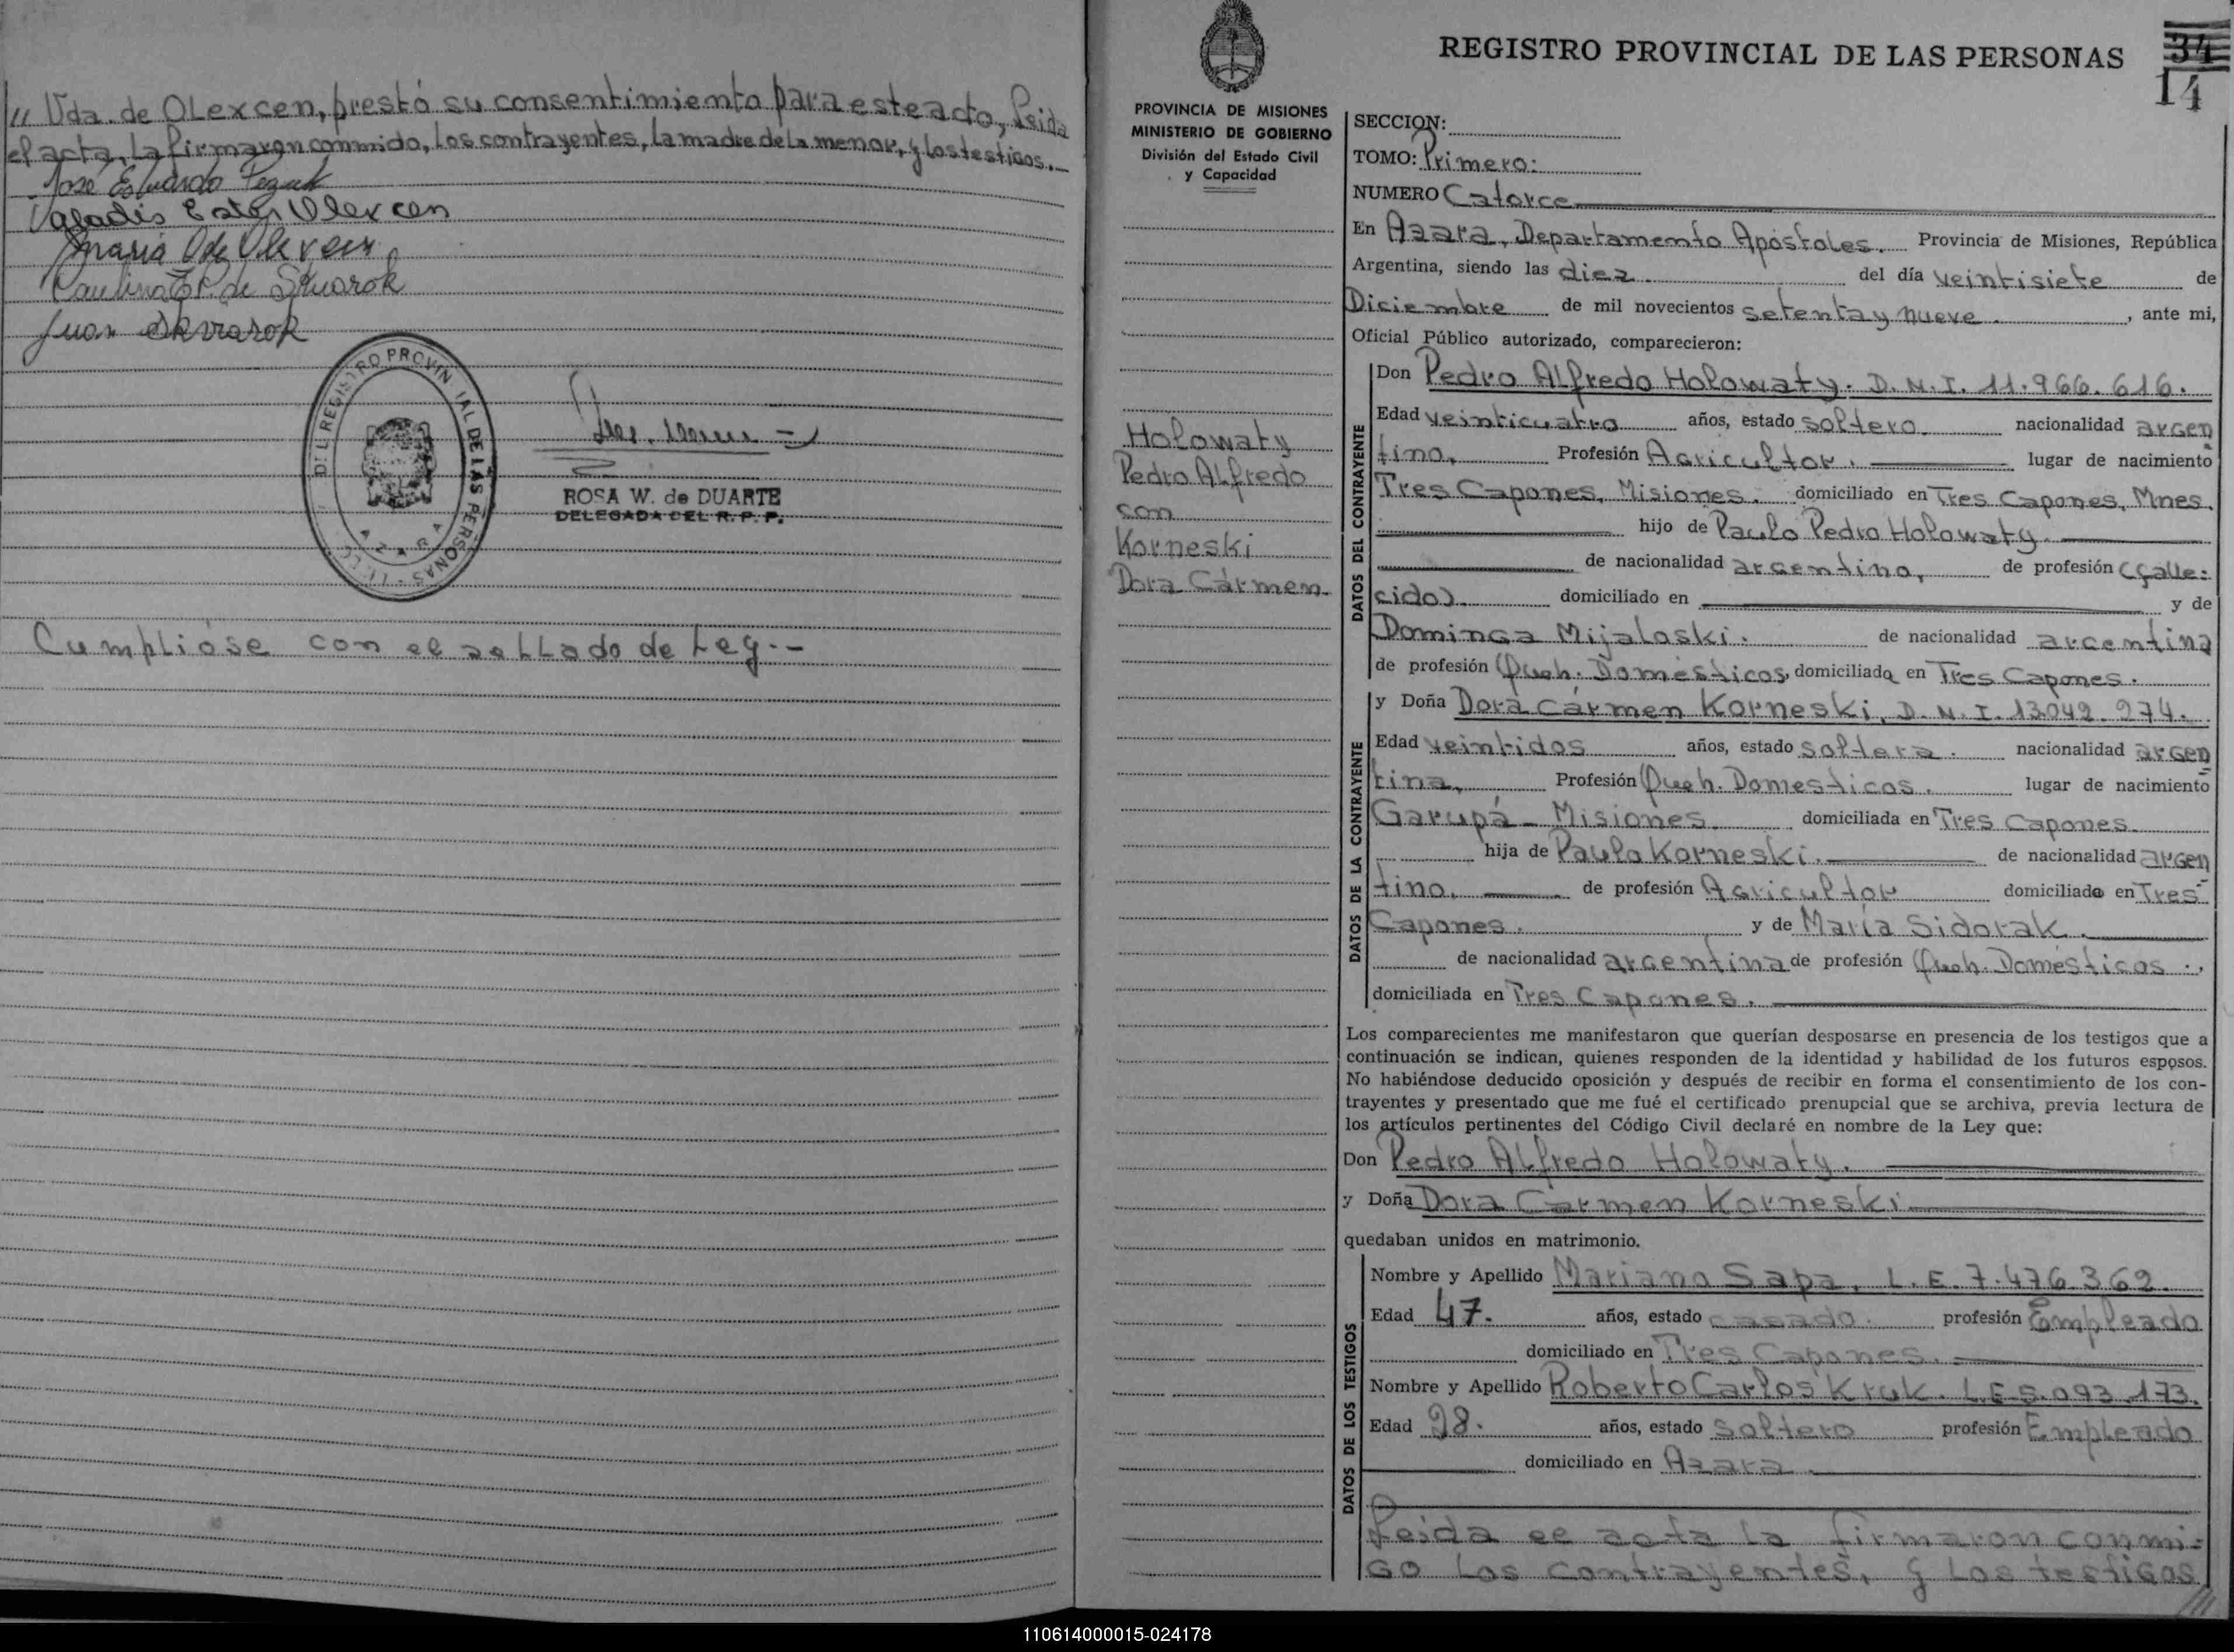 " Vda. de Olexcen, prestó su consentimiento para este acto, Leida
el acta, la firmaron conmigo, los contrayentes, la madre de la menor, y los testigos.-
José Eduardo
Ester Olexcen
María
Paulina E P. de Skwarok
Juan Skwarok
REGISTRO PROVINCIAL DE LAS PERSONAS
AZARA
ROSA W. de DUARTE
DELEGADA DEL R. P. P.
Cumplióse con el sellado de Ley.-
REGISTRO PROVINCIAL DE LAS PERSONAS
34
14
PROVINCIA DE MISIONES
MINISTERIO DE GOBIERNO
División del Estado Civil
y Capacidad
Holowaty
Pedro Alfredo
con
Korneski
Dora Cármen.
SECCION:
TOMO: Primero:
NUMERO Catorce
En Azara, Departamento Apóstoles. Provincia de Misiones, República
Argentina, siendo las diez del día veintisiete de
Diciembre de mil novecientos setenta y nueve. , ante mi,
Oficial Público autorizado, comparecieron:
DATOS DEL CONTRAYENTE
Don Pedro Alfredo Holowaty. D.N.I. 11.966.616.
Edad veinticuatro años, estado soltero nacionalidad argen
tino, Profesión Agricultor. lugar de nacimiento
Tres Capones, Misiones. domiciliado en Tres Capones, Mnes.
hijo de Paulo Pedro Holowaty.
de nacionalidad argentino, de profesión (falle:
cido) domiciliado en y de
Dominga Mijaloski. de nacionalidad argentina
de profesión Queh. Domésticos, domiciliada en Tres Capones.
DATOS DE LA CONTRAYENTE
y Doña Dora Cármen Korneski, D.N.I. 13.042.274.
Edad veintidos años, estado soltera. nacionalidad argen
tina, Profesión Queh. Domesticos. lugar de nacimiento
Garupá - Misiones domiciliada en Tres Capones.
hija de Paulo Korneski. de nacionalidad argen
tino. de profesión Agricultor domiciliado en Tres
Capones. y de María Sidorak.
de nacionalidad argentina de profesión Queh. Domésticos.,
domiciliada en Tres Capones.
Los comparecientes me manifestaron que querían desposarse en presencia de los testigos que a
continuación se indican, quienes responden de la identidad y habilidad de los futuros esposos.
No habiéndose deducido oposición y después de recibir en forma el consentimiento de los con-
trayentes y presentado que me fué el certificado prenupcial que se archiva, previa lectura de
los artículos pertinentes del Código Civil declaré en nombre de la Ley que:
Don Pedro Alfredo Holowaty.
y Doña Dora Cármen Korneski
quedaban unidos en matrimonio.
DATOS DE LOS TESTIGOS
Nombre y Apellido Mariano Sapa, L.E. 7.476.362.
Edad 47. años, estado casado. profesión Empleado
domiciliado en Tres Capones.
Nombre y Apellido Roberto Carlos Kruk. L.E. 5.093.173.
Edad 28. años, estado soltero profesión Empleado
domiciliado en Azara.
Leida el acta la firmaron conmi-
go los contrayentes, y los testigos
110614000015-024178